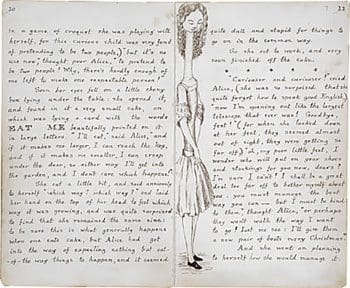 20
in a game of croquet she was playing with
herself, for this curious child was very fond
of pretending to be two people,) "but it's no
use now," thought poor Alice, "to pretend to
be two people! Why, there's hardly enough of
me left to make one respectable person!"
Soon her eyes fell on a little ebony
box lying under the table: she opened it,
and found in it a very small cake, on
which was lying a card with the words
EAT ME beautifully printed on it
in large letters. "I'll eat," said Alice, "and
if it makes me larger, I can reach the key,
and if it makes me smaller, I can creep
under the door, so either way I'll get into
the garden, and I don't care which happens!"
She eat a little bit, and said anxiously
to herself "which way? which way?" and laid
her hand on the top of her head to feel which
way it was growing, and was quite surprised
to find that she remained the same size:
to be sure this is what generally happens
when one eats cake, but Alice had got
into the way of expecting nothing but out-
of-the way things to happen, and it seemed
quite dull and stupid for things to
go on in the common way.
So she set to work, and very
soon finished off the cake.
* * * * *
"Curiouser and curiouser!" cried
Alice, (she was so surprised that she
quite forgot how to speak good English,)
"now I'm opening out like the largest
telescope that ever was! Goodbye,
feet!" (for when she looked down
at her feet, they seemed almost
out of sight, they were getting so
far off,) "oh, my poor little feet, I
wonder who will put on your shoes
and stockings for you now, dears?
I'm sure I can't! I shall be a great
deal too far off to bother myself about
you: you must manage the best
way you can — but I must be kind
to them," thought Alice, "or perhaps
they won't walk the way I want
to go! Let me see: I'll give them
a new pair of boots every Christmas."
And she went on planning
to herself how she would manage it